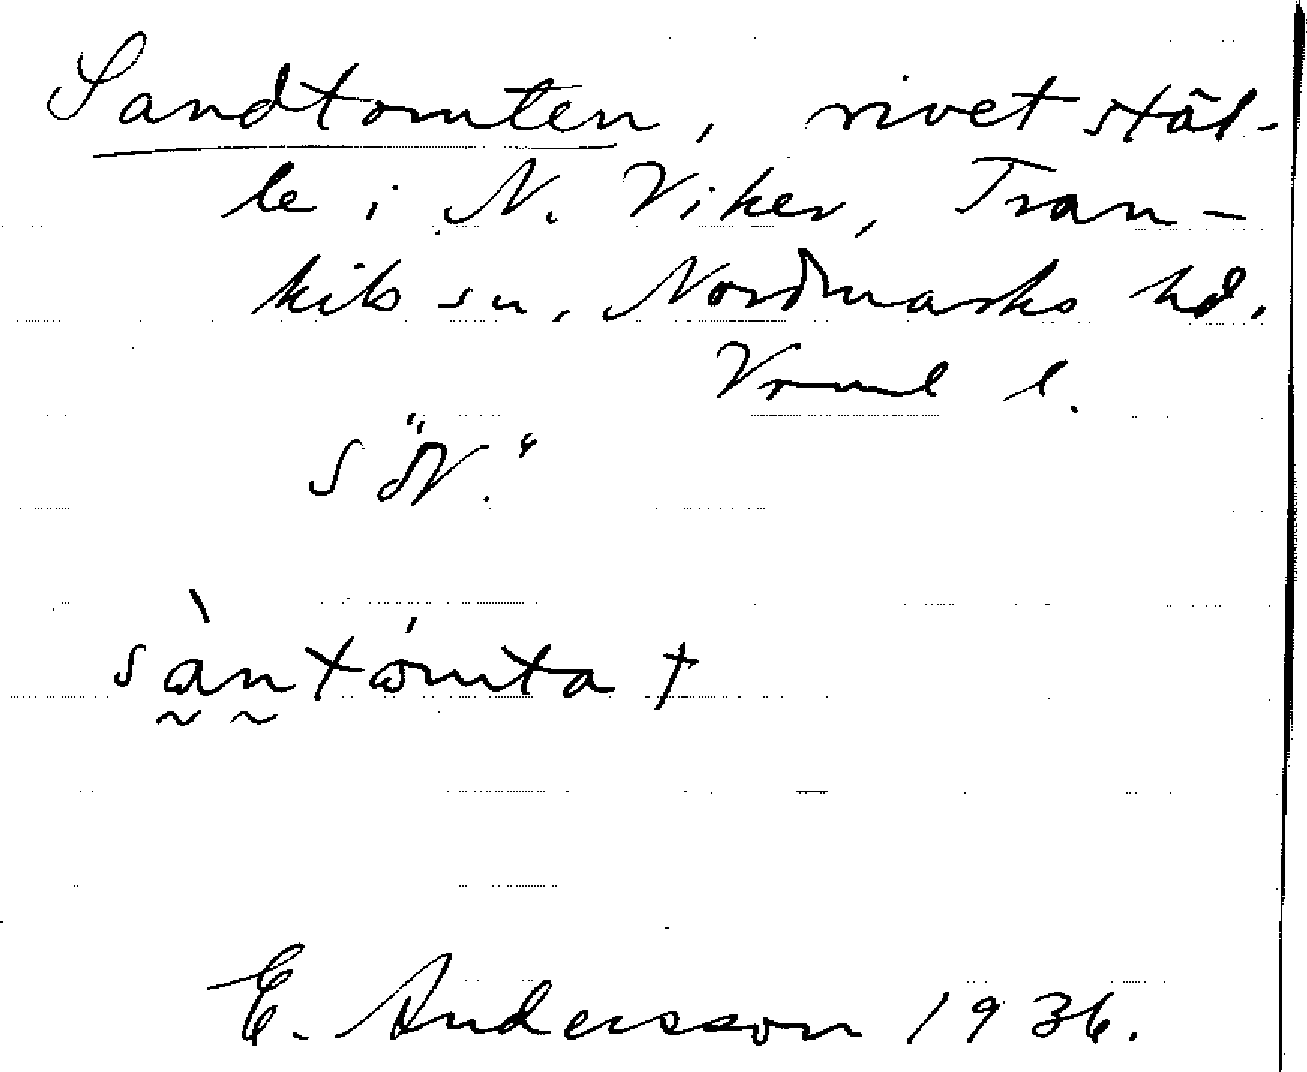 Sandtomten, rivet stäl-
le i N. Viker, Tran-
kils sn, Nordmarks hd.
Vrml l.
s ö N."
sàntómta †
E. Andersson 1936.